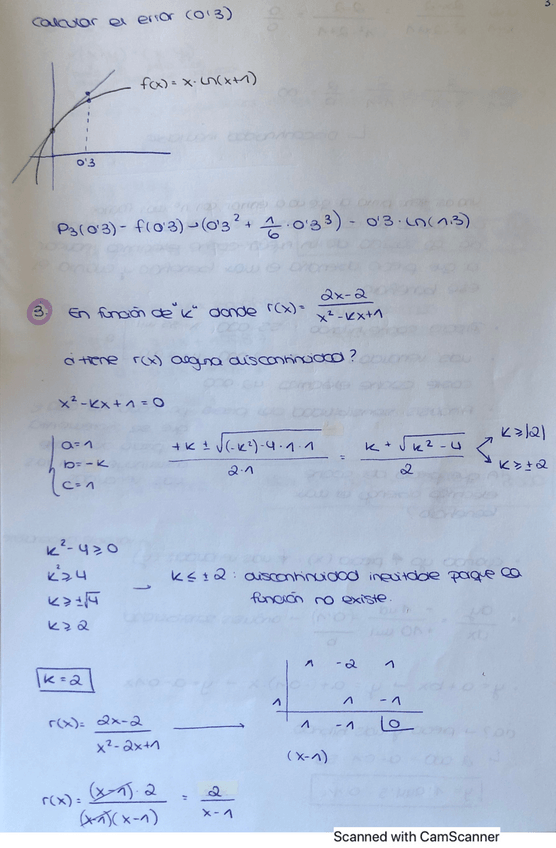 3
Calcular el error (0'3)
f(x) = x·Ln(x+1)
0'3
P₃(0'3) - f(0'3) → (0'3² + 1/6 · 0'3³) - 0'3 · Ln(1.3)
3. En función de "k" donde r(x) = (2x-2)/(x²-kx+1)
¿ tiene r(x) alguna discontinuidad?
x²-kx+1=0
a=1
b=-k
c=1
(+k ± √((-k²)-4·1·1))/(2·1) = (k + √(k²-4))/2
k ≥ |2|
k ≥ ±2
k²-4 ≥ 0
k² ≥ 4
k ≥ ±√4
k ≥ 2
→ k ≤ ±2 : discontinuidad inevitable porque la
función no existe.
k=2
1 -2 1
1 1 -1
1 -1 0
(x-1)
r(x) = (2x-2)/(x²-2x+1) →
r(x) = ((x-1)·2)/((x-1)(x-1)) = 2/(x-1)
Scanned with CamScanner